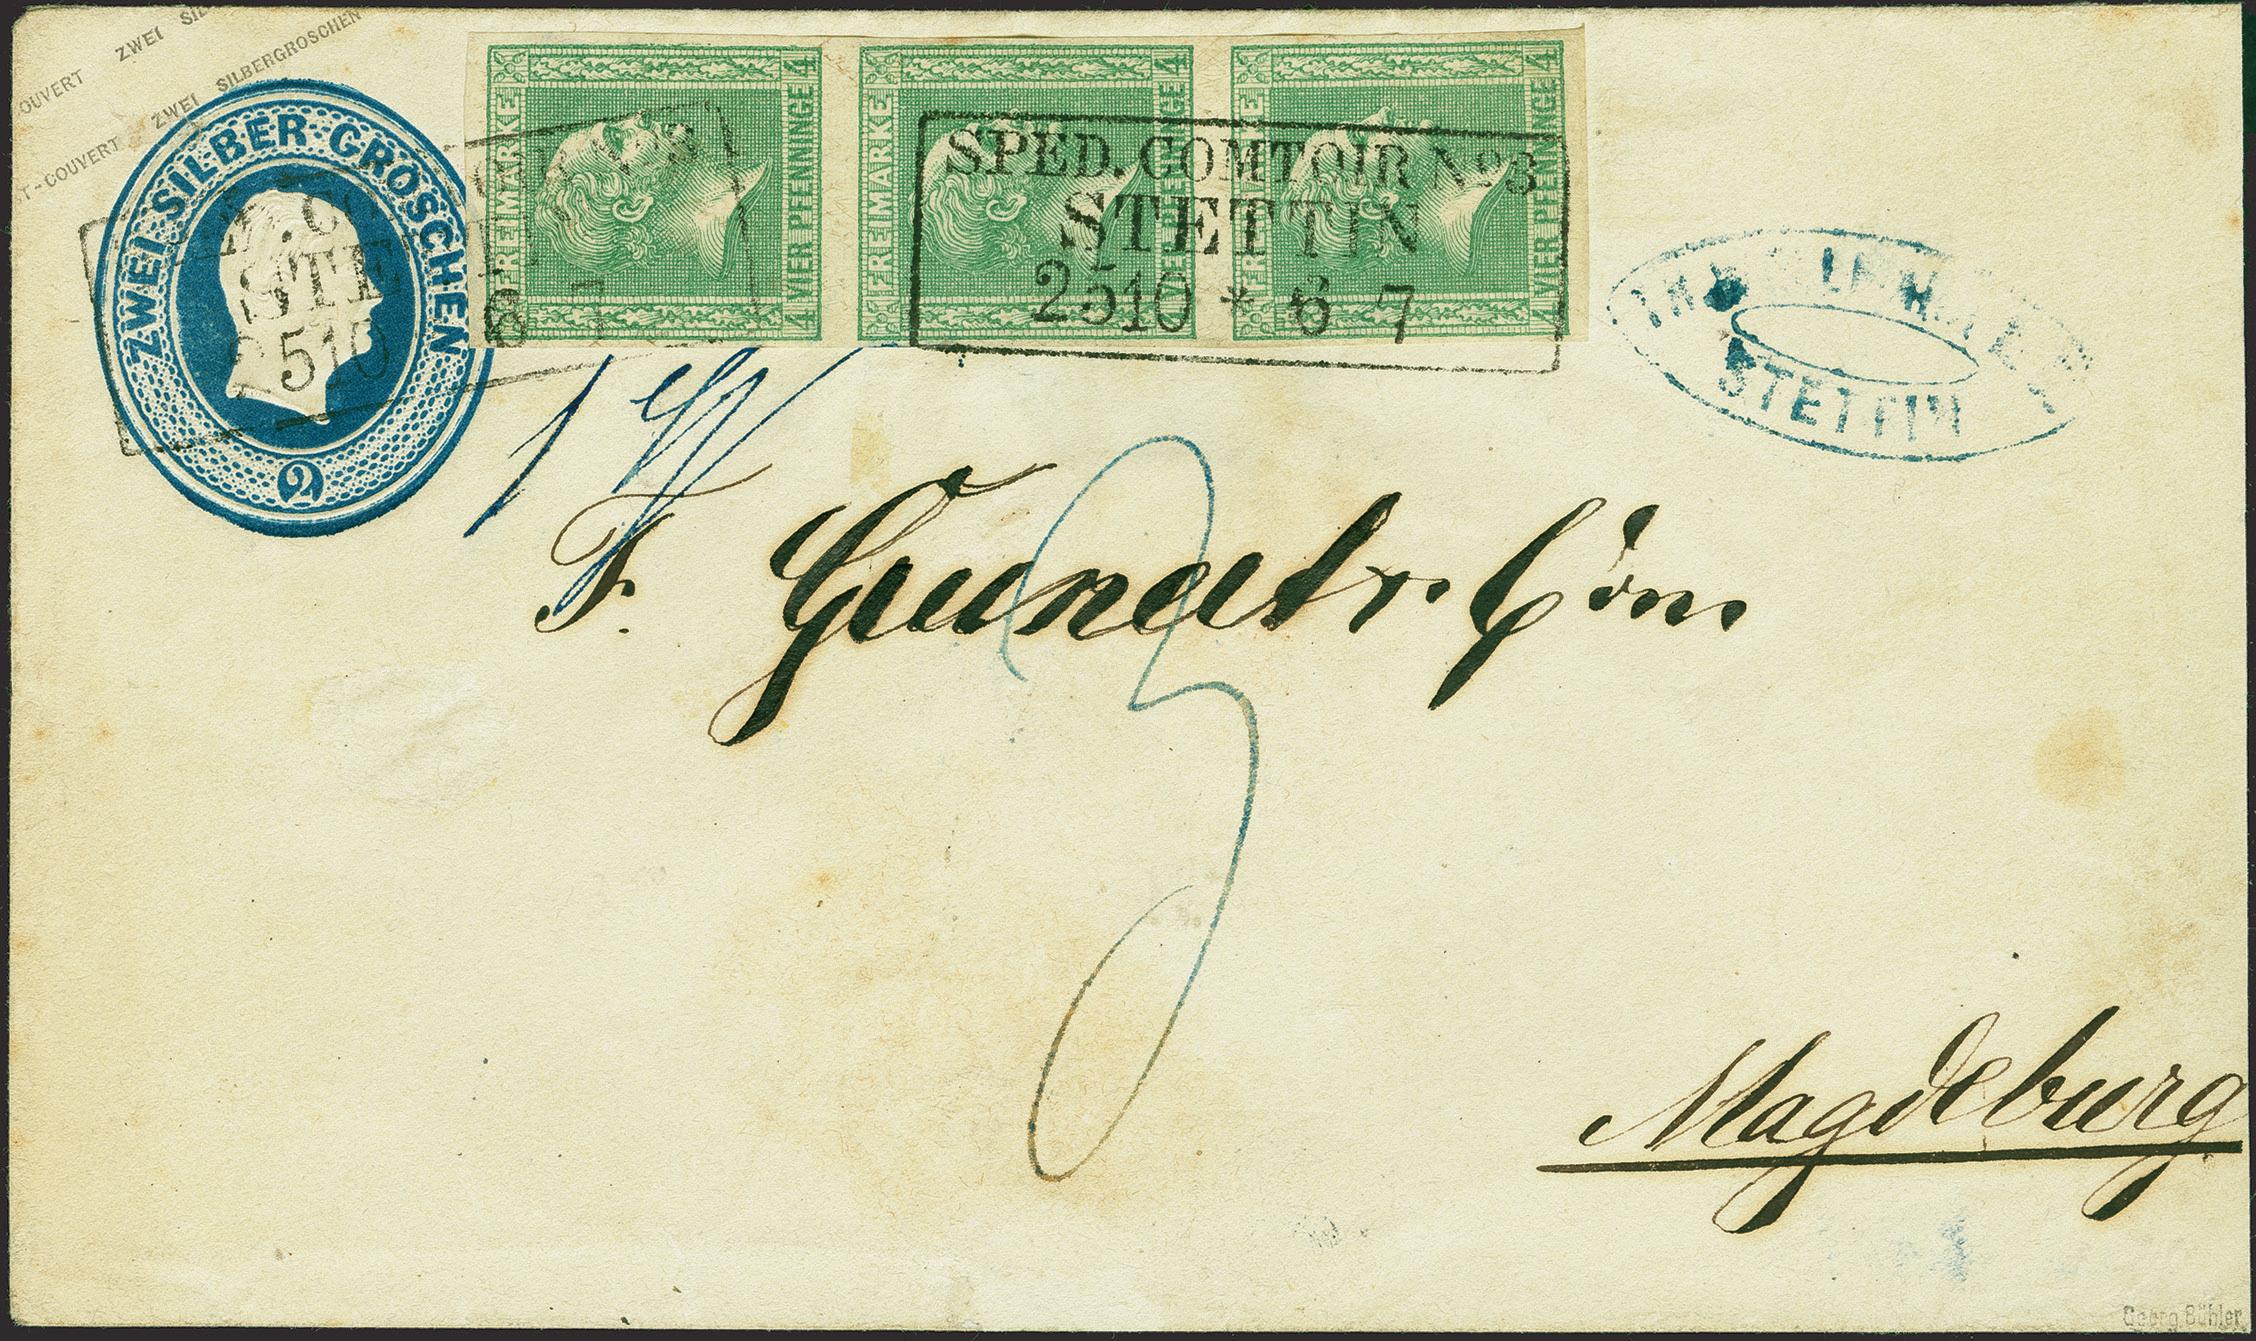 OUVERT ZWEI SIL
ST-COUVERT ZWEI SILBERGROSCHEN
ZWEI SILBER GROSCHEN
2
FREIMARKE
4 VIER PFENNINGE 4
FREIMARKE
4 VIER PFENNINGE 4
FREIMARKE
4 VIER PFENNINGE 4
STE
2510
6 7
SPED. COMTOIR No 3
STETTIN
2510 * 6 7
STETTIN
F.
3
Magdeburg
Georg Bühler